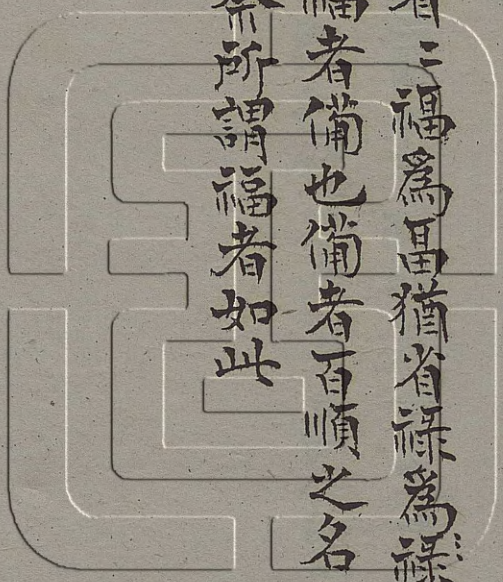 省〻福爲畐猶省祿爲祿
福者備也備者百順之名
祭所謂福者如此